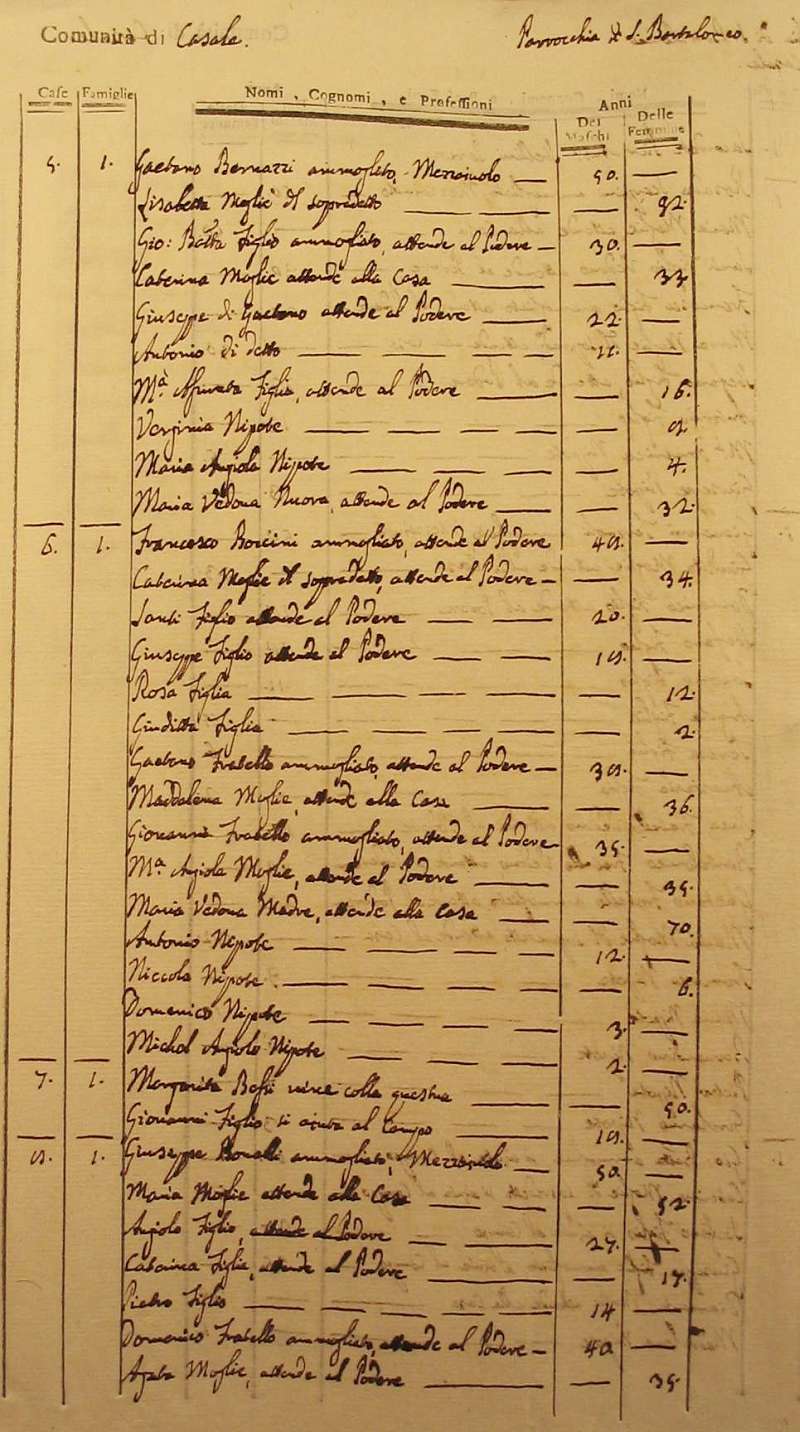 Comunità di Casale. Parrocchia di S. Bortolomeo.
Case Famiglie Nomi, Cognomi, e Professioni Anni
Dei Maschi Delle Femmine
5. 1. Gaetano Bernazzi ammogliato, Mezzaiuolo — 50. —
Lisabetta Moglie del sopradetto — — — 52.
Gio: Batta Figlio ammogliato, attende al Podere — 30. —
Caterina Moglie attende alla Casa — — 33
Giuseppe di Gaetano attende al Podere — 22. —
Antonio di detto — — — — 11. —
M.ª Assunta Figlia, attende al Podere — — 16.
Verginia Nipote — — — — 9
Maria Angiola Nipote — — — — 4.
Maria Vedova Nuora, attende al Podere — — 32.
6. 1. Francesco Boccini ammogliato, attende al Podere 49. —
Caterina Moglie del sopradetto, attende al Podere — — 34.
Santi Figlio attende al Podere — — 20. —
Giuseppe Figlio attende al Podere — — 19. —
Rosa Figlia — — — — — 12.
Giuditta Figlia — — — — — 2.
Gaetano Fratello ammogliato, attende al Podere — 39. —
Maddalena Moglie, attende alla Casa — — 36.
Giovanni Fratello ammogliato, attende al Podere — 35. —
M.ª Angiola Moglie, attende al Podere — — 35.
Maria Vedova Madre, attende alla Casa — — 70.
Antonio Nipote — — — — 12. —
Niccola Nipote. — — — — 6.
Domenico Nipote — — — — 3. —
Michel Angiolo Nipote — — — 2. —
7. 1. Margarita vive colla questua — — 50.
Giovanni Figlio si aiuta al Campo — 19. —
8. 1. Giuseppe ammogliato, Mezzaiuolo — 50 —
Maria Moglie attende alla Casa — — — 52.
Angiolo Figlio, attende al Podere — — 27. —
Caterina Figlia, attende al Podere — — 17.
Pietro Figlio — — — — — 14 —
Domenico Fratello ammogliato, attende al Podere — 40 —
Agata Moglie, attende al Podere — — 35.